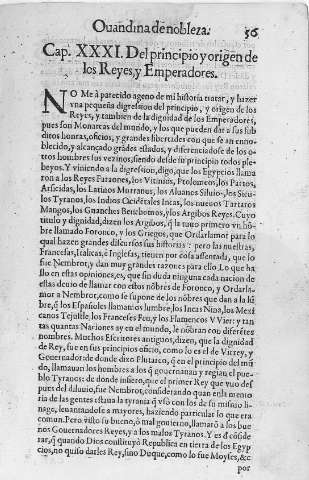 Ouandina de nobleza. 56
Cap. XXXI. Del principio y origen de
los Reyes, y Emperadores.
NO Me à parecido ageno de mi historia tratar, y hazer
vna pequeña digression del principio, y origen de los
Reyes, y tambien de la dignidad de los Emperadores,
pues son Monarcas del mundo, y los que pueden dar a sus sub
ditos honras, oficios, y grandes libertades con que se an enno-
blecido, y alcançado grãdes estados, y diferenciadose de los o-
tros hombres sus vezinos, siendo desde su principio todos ple-
beyos. Y viniendo a la digression, digo, que los Egypcios llama
ron a los Reyes Faraones, los Ptolomeos, los Partos,
Arsicidas, los Latinos Murranus, los Aluanos Siluio, los Sici-
los Tyranos, los Indios Occidẽtales Incas, los nueuos Tartaros
los Guanches y los Argibos Reyes. Cuyo
titulo y dignidad, dizen los Argibos, q̃ la tuuo primero vn hõ-
bre llamado Foronco, y los Griegos, que Ordarlamor para lo
qual hazen grandes discursos sus historias: pero las nuestras,
Francesas, Italicas, è Inglesas, tienen por cosa assentada, que lo
fue Nembrot, y dan muy grandes razones para ello. Lo que ha
llo en estas opiniones, es, que sin duda ninguna cada nacion de
estas deuio de llamar con estos nõbres de Foronco, y Ordarla-
mor a Nembrot, como se supone de los nõbres que dan a la lũ
bre, q̃ los Españoles llamamos lumbre, los Incas Nina, los Mexi
canos los Franceses Feu, y los Flamencos V ier: y tan
tas quantas Naciones ay en el mundo, le nõbran con diferẽtes
nombres. Muchos Escritores antiguos, dizen, que la dignidad
de Rey, fue en sus principios oficio, como lo es el de Virrey, y
Gouernador de donde dize Plutarco, q̃ en el principio del mũ
do, llamauan los hombres a los q̃ gouernauan y regian el pue-
blo Tyranos: de donde infiero, que el primer Rey que vuo des
pues del diluuio, fue Nembrot, considerando quan sin memo
ria de las gentes estaua la tyrania q̃ vsò con los de su mismo li-
nage, leuantandose a mayores, haziendo particular lo que era
comun. Pero visto su bueno, ò mal gouierno, llamarõ a los bue
nos Gouernadores Reyes, y a los malos Tyranos. Y es d̃ cõside
rar, q̃ quando Dios constituyò Republica en tierra de los Egyp
cios, no quiso darles Rey, sino Duque, como lo fue Moyses, &c
por